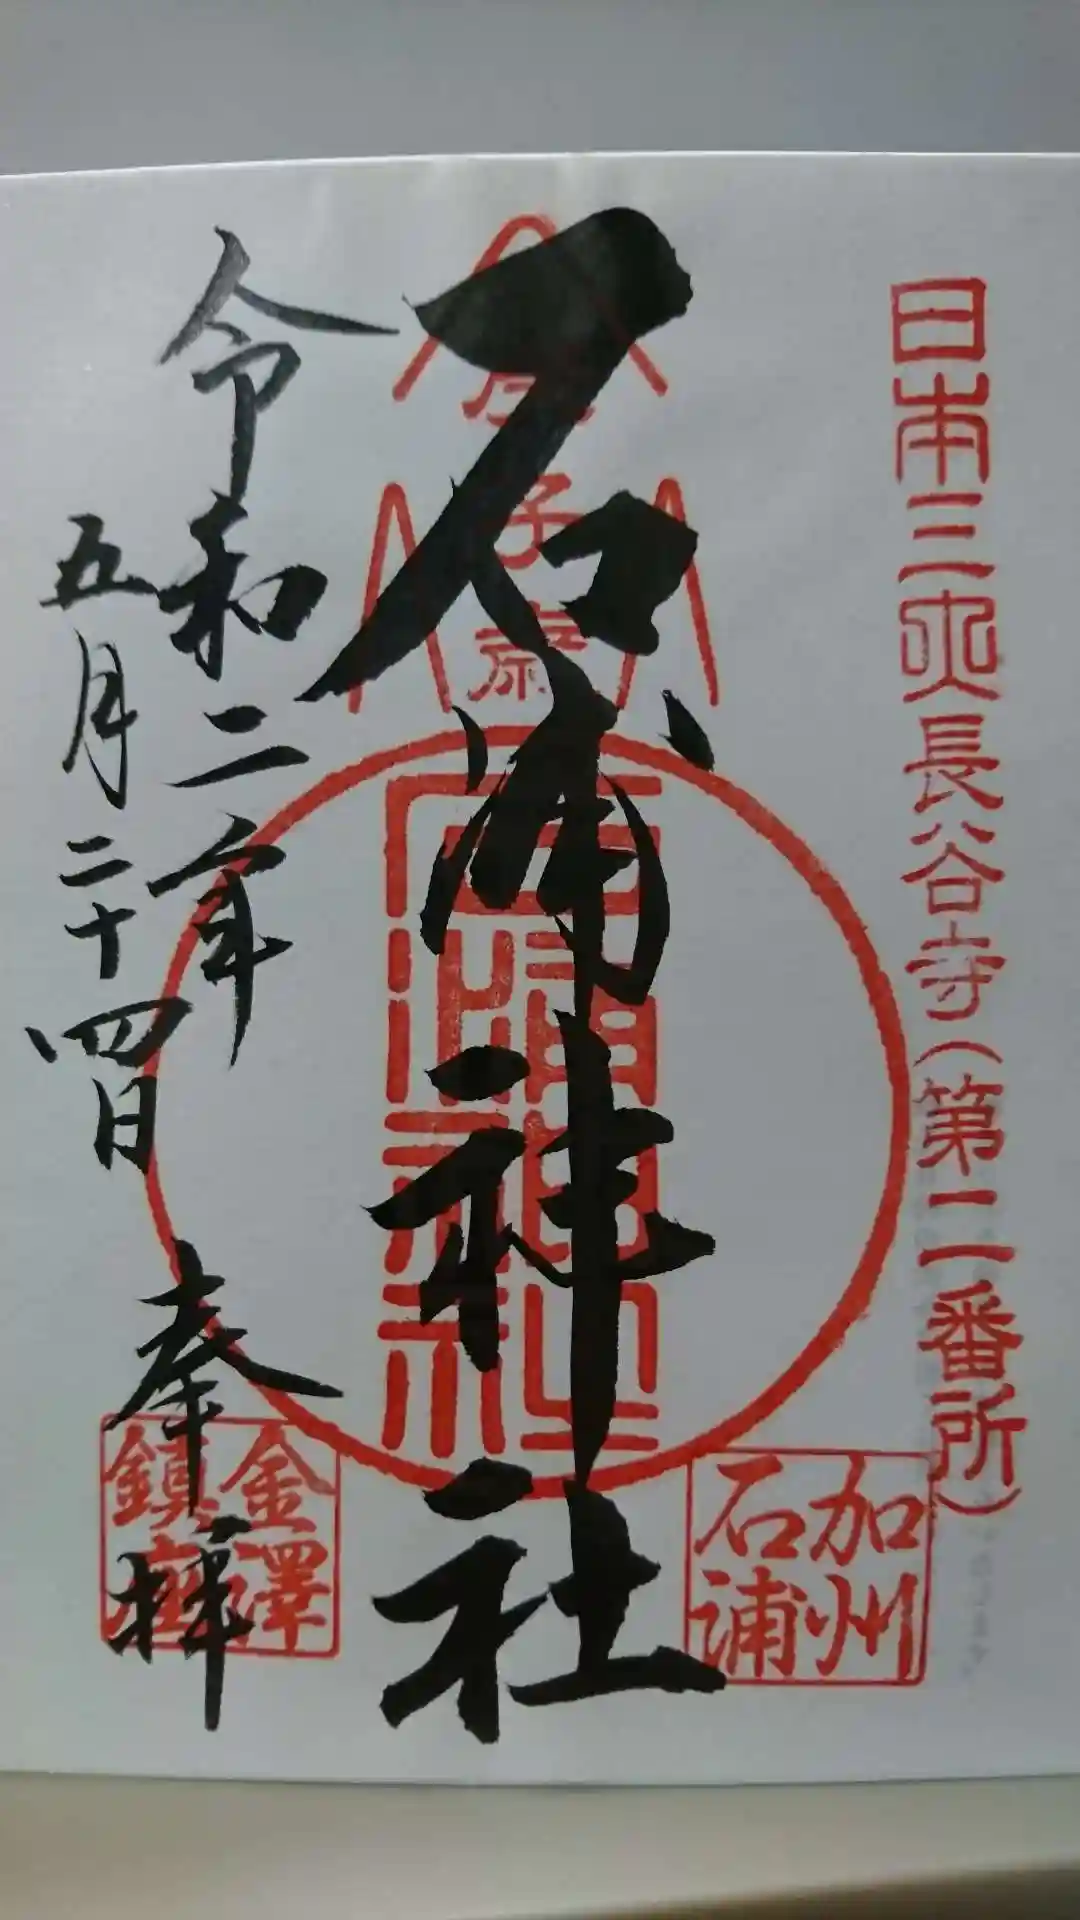 日本三大長谷寺(第二番所)
加州
石浦
石浦神社
石浦神社
令和二年
五月二十四日
奉拝
金澤
鎮座